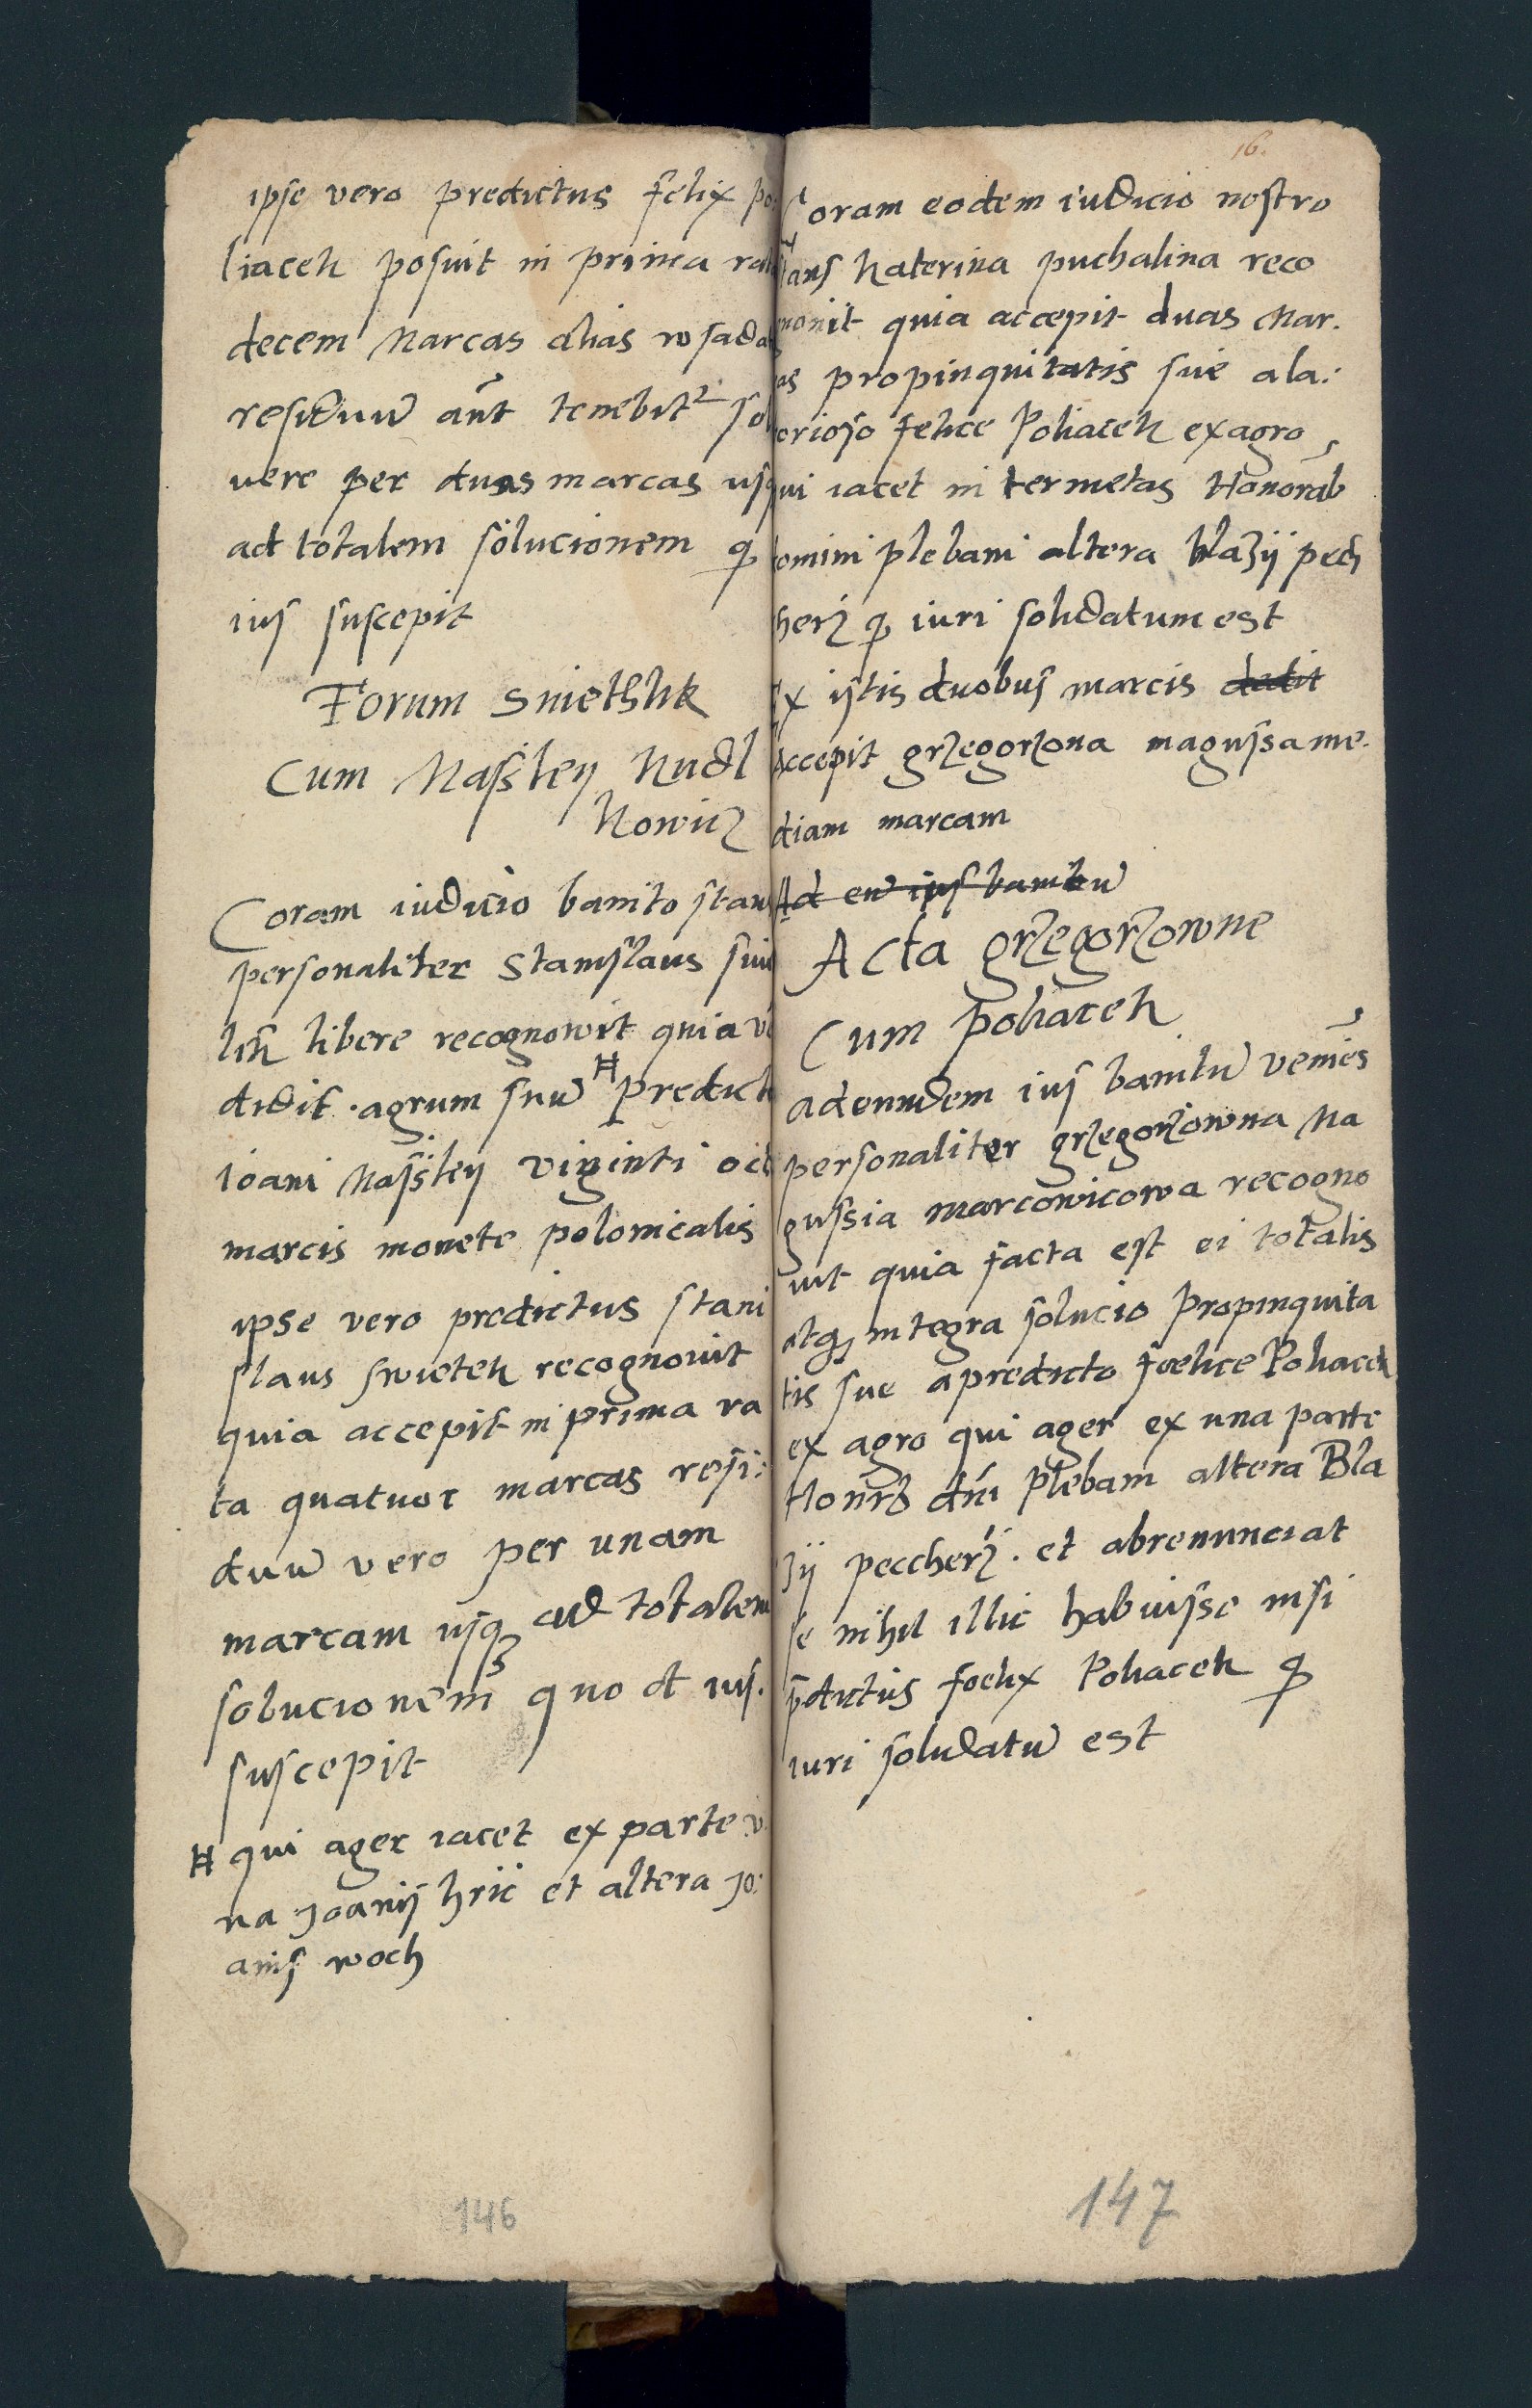 ipse vero predictus felix po
liacek posuit in prima rat
decem Marcas alias w sadu
residuū aūt tenebitᵘʳ sol
uere per duas marcas usq
ad totalem solucionem q
ius suscepit
Forum swiethk
Cum Massley Kudl
Kowicz
Coram iudicio banito stans
personaliter Stanislaus swie
tek libere recognowit quia ve
didit . agrum suū # predicto
ioani Massley viginti octo
marcis monete polonicalis
ipse vero predictus stani
slaus swietek recognouit
quia accepit in prima ra
ta quatuor marcas resi:
duū vero per unam
marcam usq3 ad totalem
solucionem quod ius.
suscepit
# qui ager iacet ex parte v
na Joanij hric et altera Jo:
anis woch
146
16.
Coram eodem iudicio nostro
stans Katerina puchalina reco
gnouit quia accepit duas Mar.
cas propinquitatis sue a la:
borioso felice Poliacek ex agro
qui iacet in ter metas Honorab
domini plebani altera blazij pech
herz q iuri solidatum est
Ex istis duobus marcis dedit
accepit grzegorzona magussa me.
diam marcam
Ad eū ius banitū
Acta grzegorzowne
Cum poliacek
ad eundem ius banitū veniēs
personaliter grzegorzowna Ma
gussia marcowicowa recogno
uit quia facta est ei totalis
atq3 integra solucio Propinquita
tis sue a predicto foelice Poliacek
ex agro qui ager ex una parte
Honrb dni Plebani altera Bla
zij peccherz . et abrenunciat
se nihil illic habuisse nisi
p̄dictus foelix Poliacek q
iuri solidatū est
147